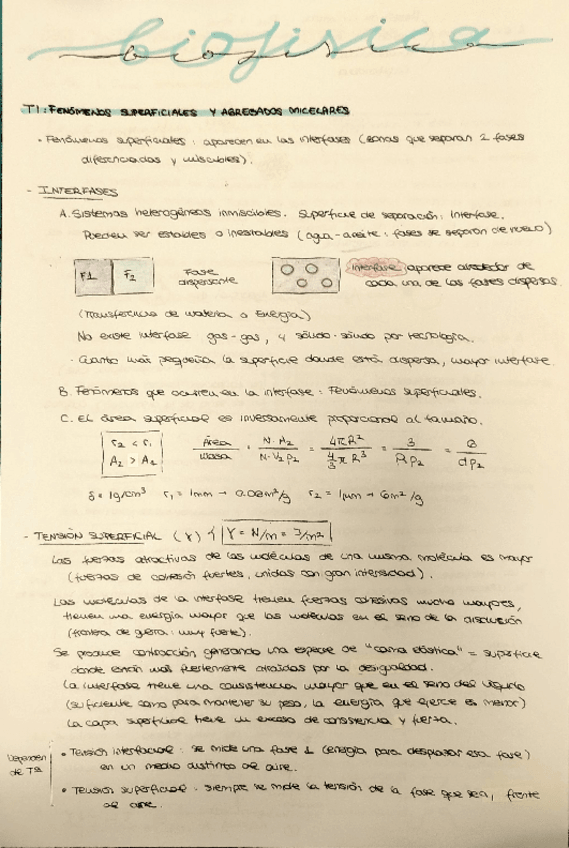 biofisica
T1: FENÓMENOS SUPERFICIALES Y AGREGADOS MICELARES
• Fenómenos superficiales: aparecen en las interfases (zonas que separan 2 fases
diferenciadas y miscibles).
- INTERFASES
A. Sistemas heterogéneos inmiscibles. Superficie de separación: Interfase.
Pueden ser estables o inestables (agua-aceite: fases se separan de nuevo)
F1 F2 Fase dispersante Interfase aparece alrededor de
cada una de las fases dispersas.
(transferencia de materia o Energía)
No existe interfase gas-gas, y sólido-sólido por tecnología.
· Cuanto más pequeña la superficie donde está dispersa, mayor interfase
B. Fenómenos que ocurren en la interfase: Fenómenos superficiales.
C. El área superficial es inversamente proporcional al tamaño.
r2 < r1
A2 > A1
Área/Masa = N·A2/N·V2ρ2 = 4πR²/(4/3 πR³) = 3/Rρ2 = 6/dρ2
δ = 1g/cm³ r1 = 1mm → 0.02m²/g r2 = 1μm → 6m²/g
- TENSIÓN SUPERFICIAL (γ) γ = N/m = J/m²
Las fuerzas atractivas de las moléculas de una misma molécula es mayor
(fuerzas de cohesión fuertes, unidas con gran intensidad).
Las moléculas de la interfase tienen fuerzas cohesivas mucho mayores,
tienen una energía mayor que las moléculas en el seno de la disolución
(frontera de guerra: muy fuerte).
Se produce contracción generando una especie de "cama elástica" = superficie
donde están más fuertemente atraídas por la desigualdad.
La interfase tiene una consistencia mayor que en el seno del líquido
(suficiente como para mantener su peso, la energía que ejerce es menor)
La capa superficie tiene un exceso de consistencia y fuerza.
Dependen
de Tª
• Tensión interfacial: se mide una fase ⊥ (energía para desplazar esa fase)
en un medio distinto al aire.
• Tensión superficial: siempre se mide la tensión de la fase que sea, frente
al aire.